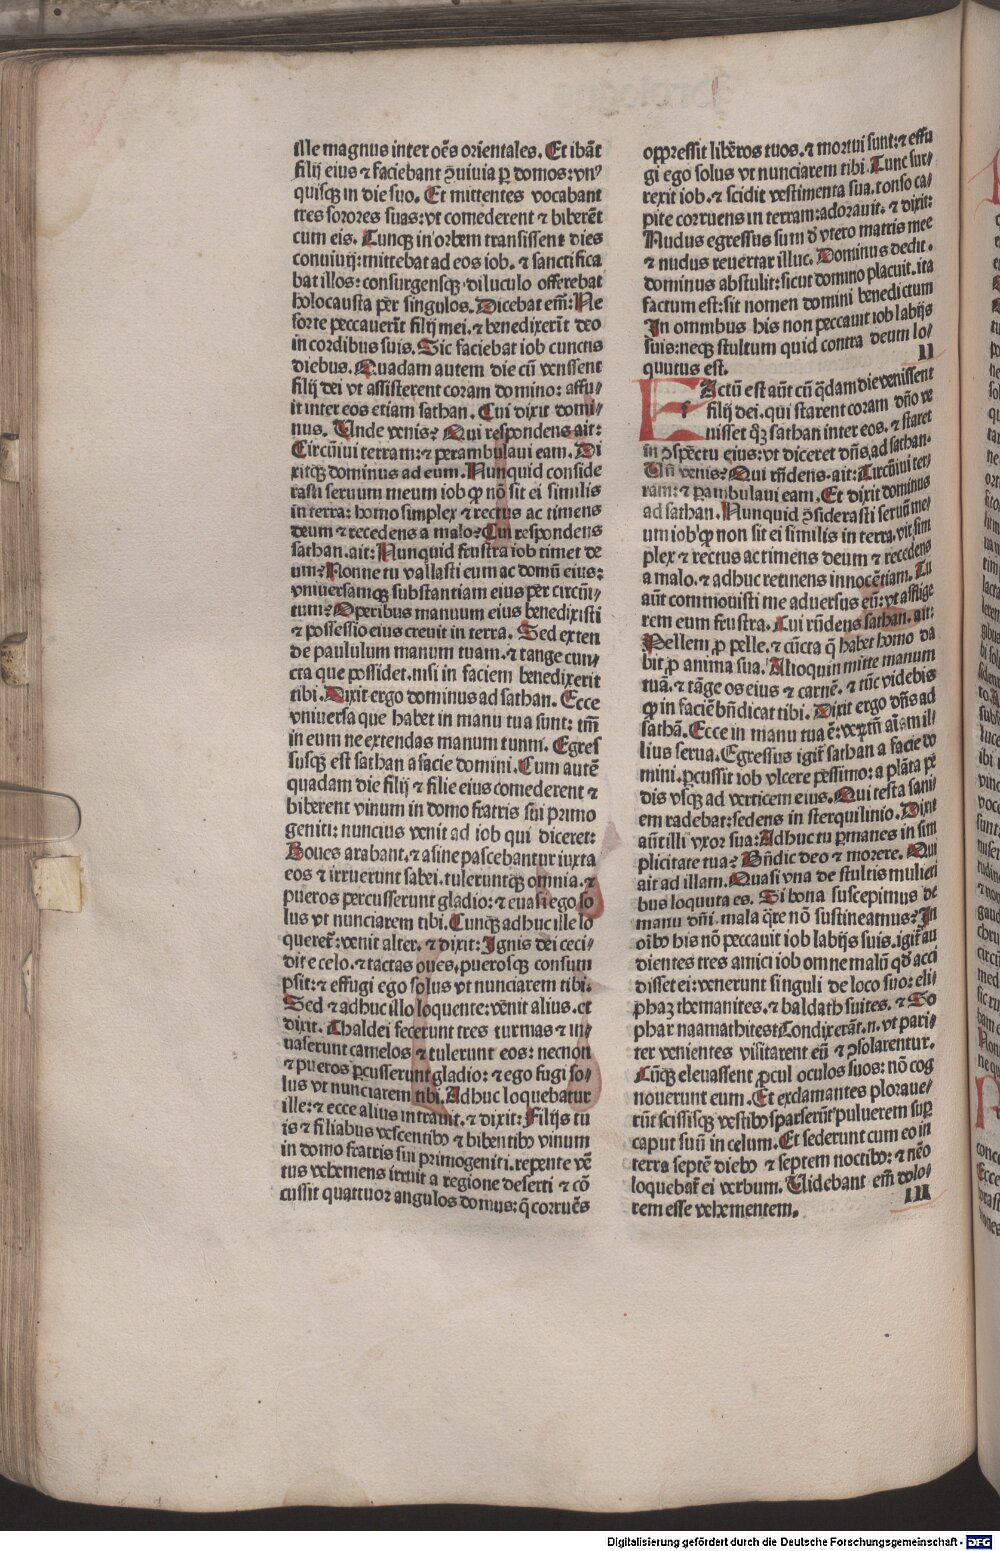 ille magnus inter oẽs orientales. Et ibãt
filij eius ⁊ faciebant ꝯuiuia ꝑ domos: vnꝰ
quisqꝫ in die suo. Et mittentes vocabant
tres sorores suas: vt comederent ⁊ biberẽt
cum eis. Cunqꝫ in orbem transissent dies
conuiuij: mittebat ad eos iob. ⁊ sanctifica
bat illos: consurgensqꝫ diluculo offerebat
holocausta per singulos. Dicebat em̃: Ne
forte peccauerĩt filij mei. ⁊ benedixerĩt deo
in cordibus suis. Sic faciebat iob cunctis
diebus. Quadam autem die cũ venissent
filij dei vt assisterent coram domino: affu⸗
it inter eos etiam sathan. Cui dixit domi⸗
nus. Unde venis? Qui respondens ait:
Circũiui terram: ⁊ perambulaui eam. Di
xitqꝫ dominus ad eum. Nunquid conside
rasti seruum meum iob ꝙ nõ sit ei similis
in terra: homo simplex ⁊ rectus ac timens
deum ⁊ recedens a malo? Cui respondens
sathan. ait: Nunquid frustra iob timet de
um? Nonne tu vallasti eum ac domũ eius:
vniuersamqꝫ substantiam eius per circũi⸗
tum? Operibus manuum eius benedixisti
⁊ possessio eius creuit in terra. Sed exten
de paululum manum tuam. ⁊ tange cun⸗
cta que possidet. nisi in faciem benedixerit
tibi. Dixit ergo dominus ad sathan. Ecce
vniuersa que habet in manu tua sunt: tm̃
in eum ne extendas manum tuam. Egres
susqꝫ est sathan a facie domini. Cum autẽ
quadam die filij ⁊ filie eius comederent ⁊
biberent vinum in domo fratris sui primo
geniti: nuncius venit ad iob qui diceret:
Boues arabant. ⁊ asine pascebantur iuxta
eos ⁊ irruerunt sabei. tuleruntqꝫ omnia. ⁊
pueros percusserunt gladio: ⁊ euasi ego so
lus vt nunciarem tibi. Cunqꝫ adhuc ille lo
queret̃: venit alter. ⁊ dixit: Ignis dei ceci⸗
dit e celo. ⁊ tactas oues. puerosqꝫ consum
psit: ⁊ effugi ego solus vt nunciarem tibi.
Sed ⁊ adhuc illo loquente: venit alius. et
dixit. Chaldei fecerunt tres turmas ⁊ in⸗
uaserunt camelos ⁊ tulerunt eos: necnon
⁊ pueros ꝑcusserunt gladio: ⁊ ego fugi so⸗
lus vt nunciarem tibi. Adhuc loquebatur
ille: ⁊ ecce alius intrauit. ⁊ dixit: Filijs tu
is ⁊ filiabus vescentibꝰ ⁊ bibentibꝰ vinum
in domo fratris sui primogeniti. repente vẽ
tus vehemens irruit a regione deserti ⁊ cõ
cussit quattuor angulos domus: q̃ corruẽs
oppressit liberos tuos. ⁊ mortui sunt: ⁊ effu
gi ego solus vt nunciarem tibi. Tunc sur⸗
rexit iob. ⁊ scidit vestimenta sua. tonso ca⸗
pite corruens in terram: adorauit. ⁊ dixit:
Nudus egressus sum d̓ vtero matris mee
⁊ nudus reuertar illuc. Dominus dedit.
dominus abstulit: sicut domino placuit. ita
factum est: sit nomen domini benedictum
In omnibus his non peccauit iob labijs
suis: neqꝫ stultum quid contra deum lo⸗
quutus est. II
Actũ est aũt cũ q̃dam die venissent
filij dei. qui starent coram dño ve
nisset qꝫ sathan inter eos. ⁊ staret
in ꝯspectu eius: vt diceret dñs. ad sathan.
Uñ venis? Qui rñdens. ait: Circũiui ter⸗
ram: ⁊ ꝑambulaui eam. Et dixit dominus
ad sathan. Nunquid ꝯsiderasti seruũ me⸗
um iob ꝙ non sit ei similis in terra. vir sim
plex ⁊ rectus ac timens deum ⁊ recedens
a malo. ⁊ adhuc retinens innocẽtiam. Tu
aũt commouisti me aduersus eũ: vt afflige
rem eum frustra. Cui rñdens sathan. ait:
Pellem ꝓ pelle. ⁊ cũcta q̃ habet homo da
bit ꝓ anima sua. Alioquin mitte manum
tuã. ⁊ tãge os eius ⁊ carnẽ. ⁊ tũc videbis
ꝙ in faciẽ bñdicat tibi. Dixit ergo dñs ad
sathã. Ecce in manu tua ẽ: veꝝtñ aĩam il⸗
lius serua. Egressus igit̃ sathan a facie do
mini. ꝑcussit iob vlcere pessimo: a plãta pe
dis vsqꝫ ad verticem eius. Qui testa sani⸗
em radebat: sedens in sterquilinio. Dixit
aũt illi vxor sua: Adhuc tu ꝑmanes in sim
plicitate tua? Bñdic deo ⁊ morere. Qui
ait ad illam. Quasi vna de stultis mulieri
bus loquuta es. Si bona suscepimus de
manu dñi. mala q̃re nõ sustineamus? In
oĩbꝰ his nõ peccauit iob labijs suis. igit̃ au
dientes tres amici iob omne malũ qd̓ acci
disset ei: venerunt singuli de loco suo: eli⸗
phaz themanites. ⁊ baldath suites. ⁊ So
phar naamathites: Condixerãt. n. vt pari⸗
ter venientes visitarent eũ ⁊ ꝯsolarentur.
Cũqꝫ eleuassent ꝓcul oculos suos: nõ cog
nouerunt eum. Et exclamantes plorauerũt
rũt scissisqꝫ vestibꝰ sparserũt puluerem suꝑ
caput suũ in celum. Et sederunt cum eo in
terra septẽ diebꝰ ⁊ septem noctibꝰ: ⁊ nẽo
loquebat̃ ei verbum. Uidebant em̃ dolo⸗
rem esse vehementem. III
Digitalisierung gefördert durch die Deutsche Forschungsgemeinschaft - DFG